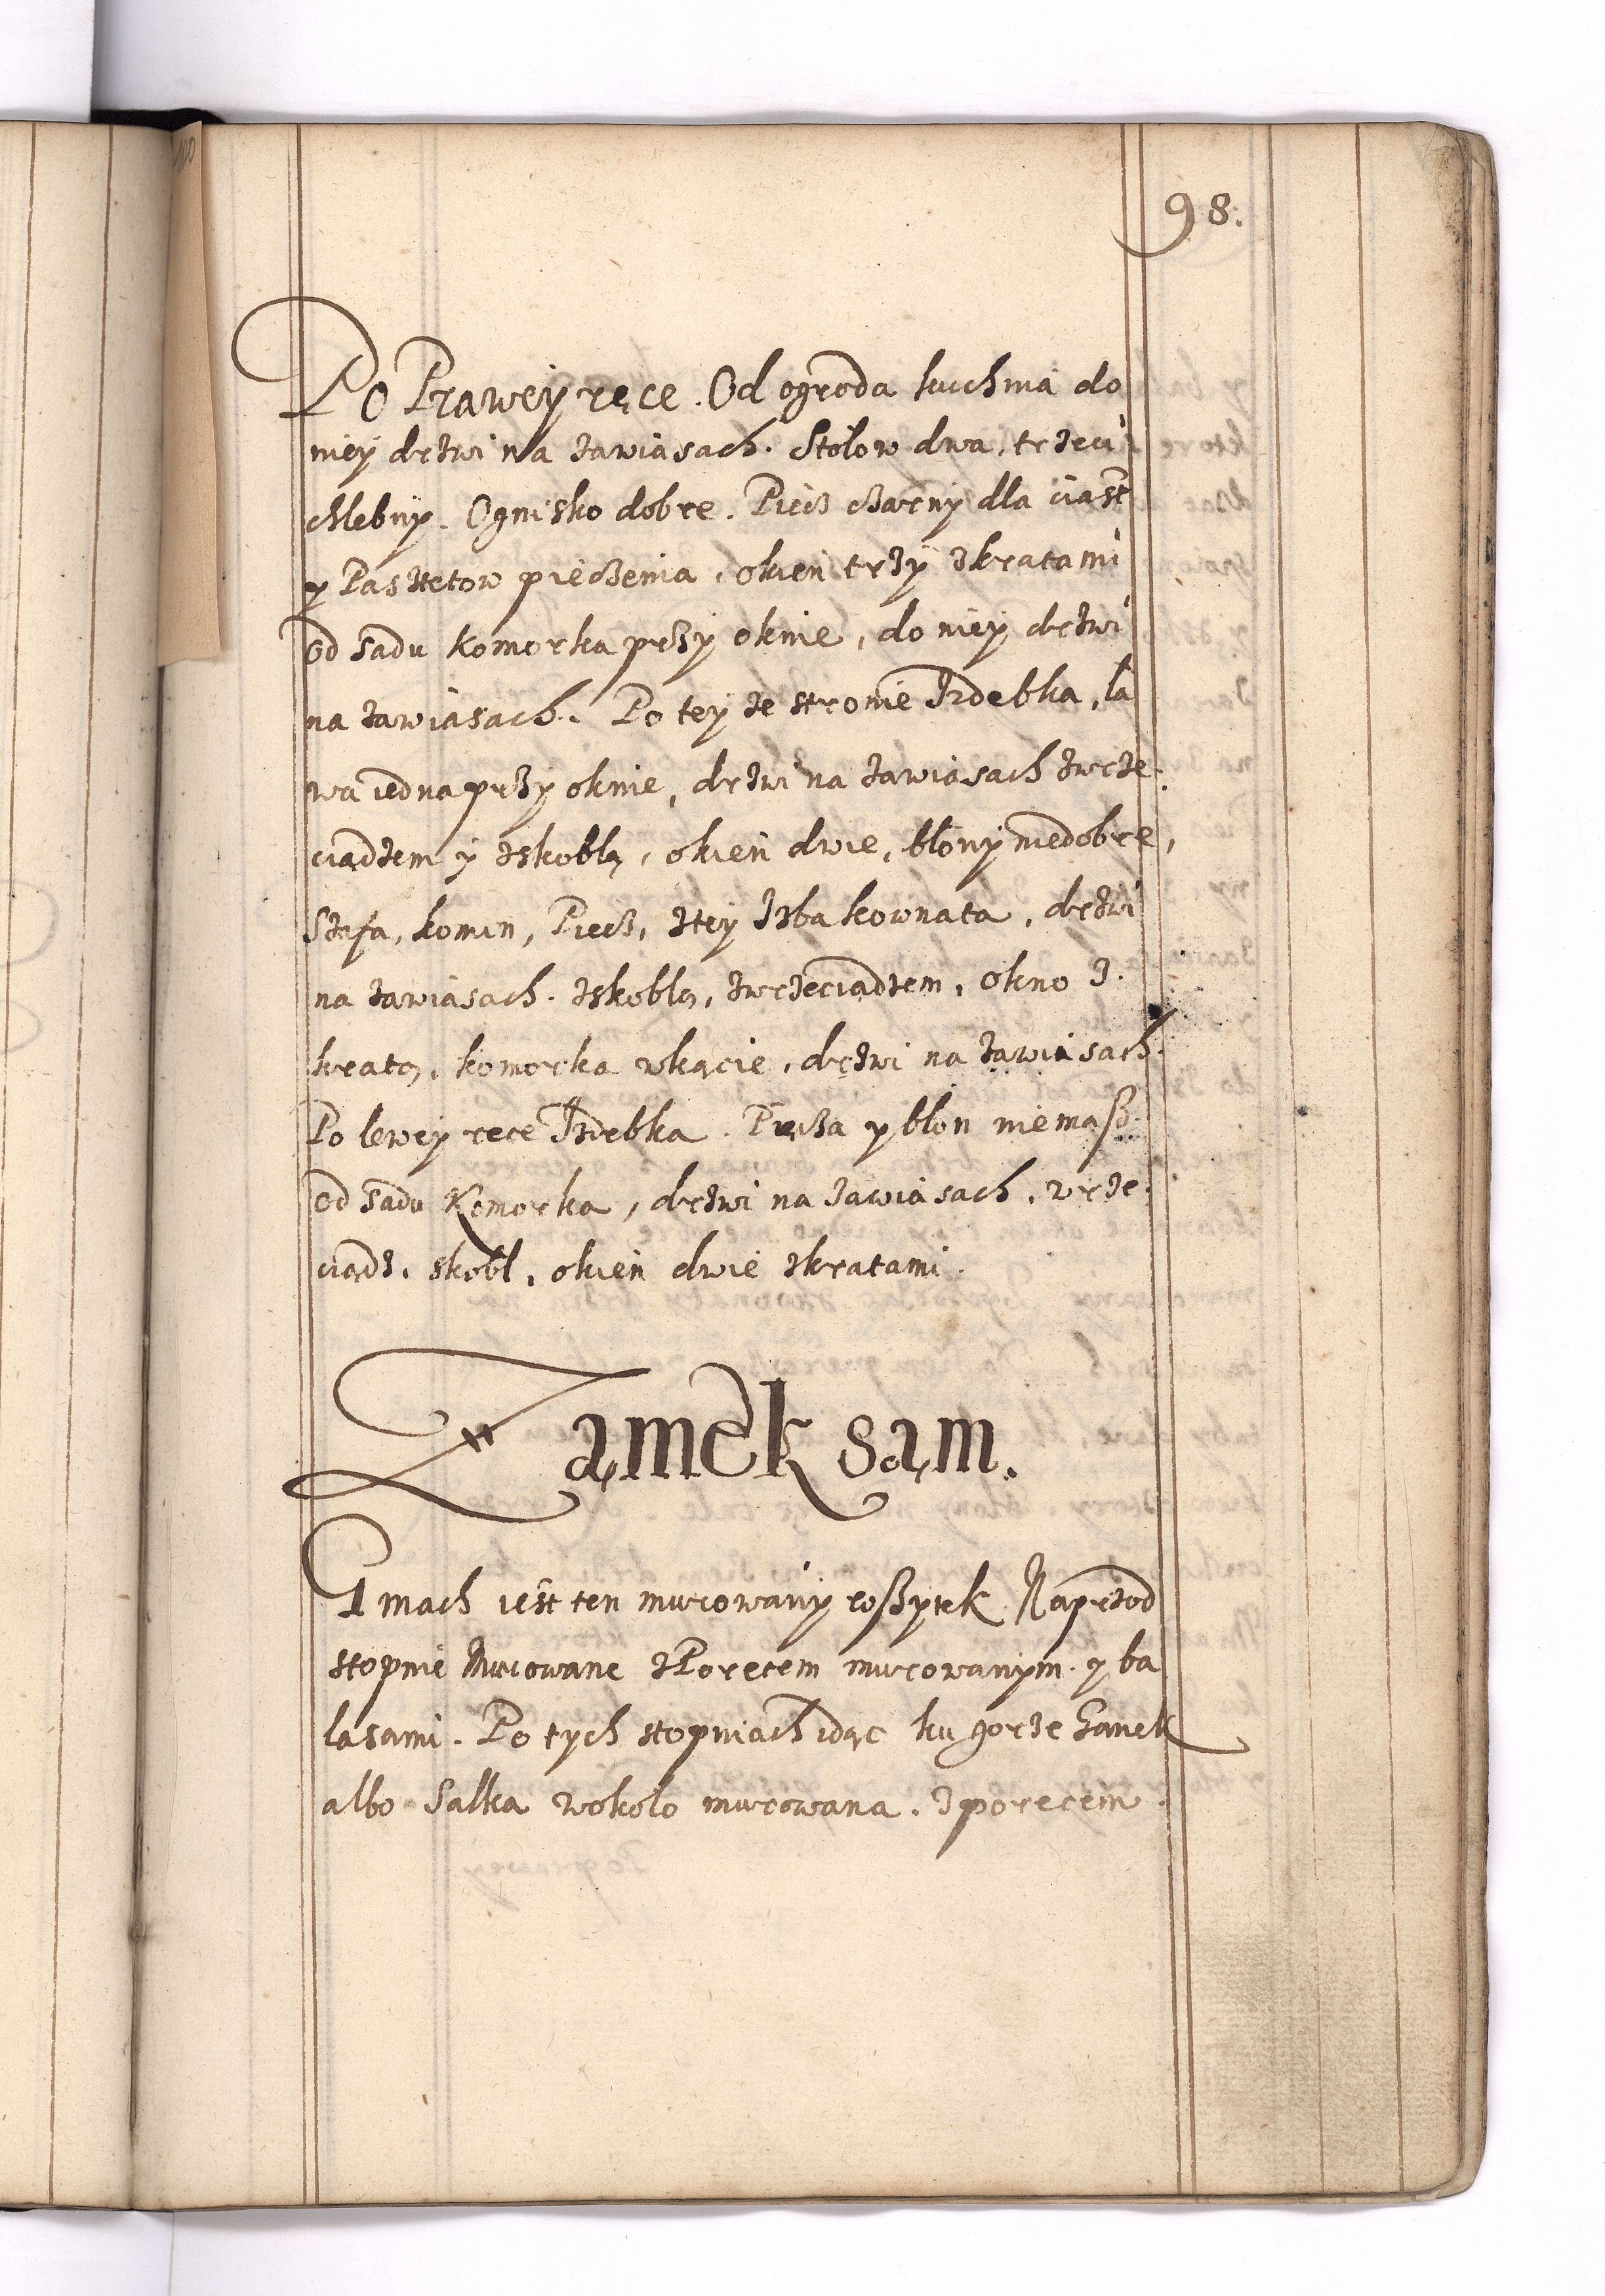 98.
Po Prawey ręce. Od ogroda kuchnia do
niey drzwi na zawiasach. Stolow dwa, trzeci
chlebny. Ognisko dobre. Piecz czarny dla ciast
y Pasztetow pieczenia, okien trzy zkratami
od Sadu komorka przy oknie, do niey drzwi
na zawiasach. Po tey ze stronie Izdebka, ła
wa iedna przy oknie, drzwi na zawiasach zwrze
ciądzem y zskoblą, okien dwie, błony niedobre,
Szafa, komin, Piecz, ztey Izba kownata, drzwi
na zawiasach. zskoblą, zwrzeciądzem, okno z
kratą, komorka wkącie, drzwi na zawiasach.
Po lewey rece Izdebka. Piecza y błon niemasz.
od Sadu Komorka, drzwi na zawiasach, wrze
ciądz, skobl, okien dwie zkratami.
Zamek sam.
Gmach iest ten murowany roszytek Naprzod
stopnie Murowane zPorecem murowanym. y ba
lasami. Po tych stopniach idąc ku gorze Ganek
albo Salka wokolo murowana. zporecem.